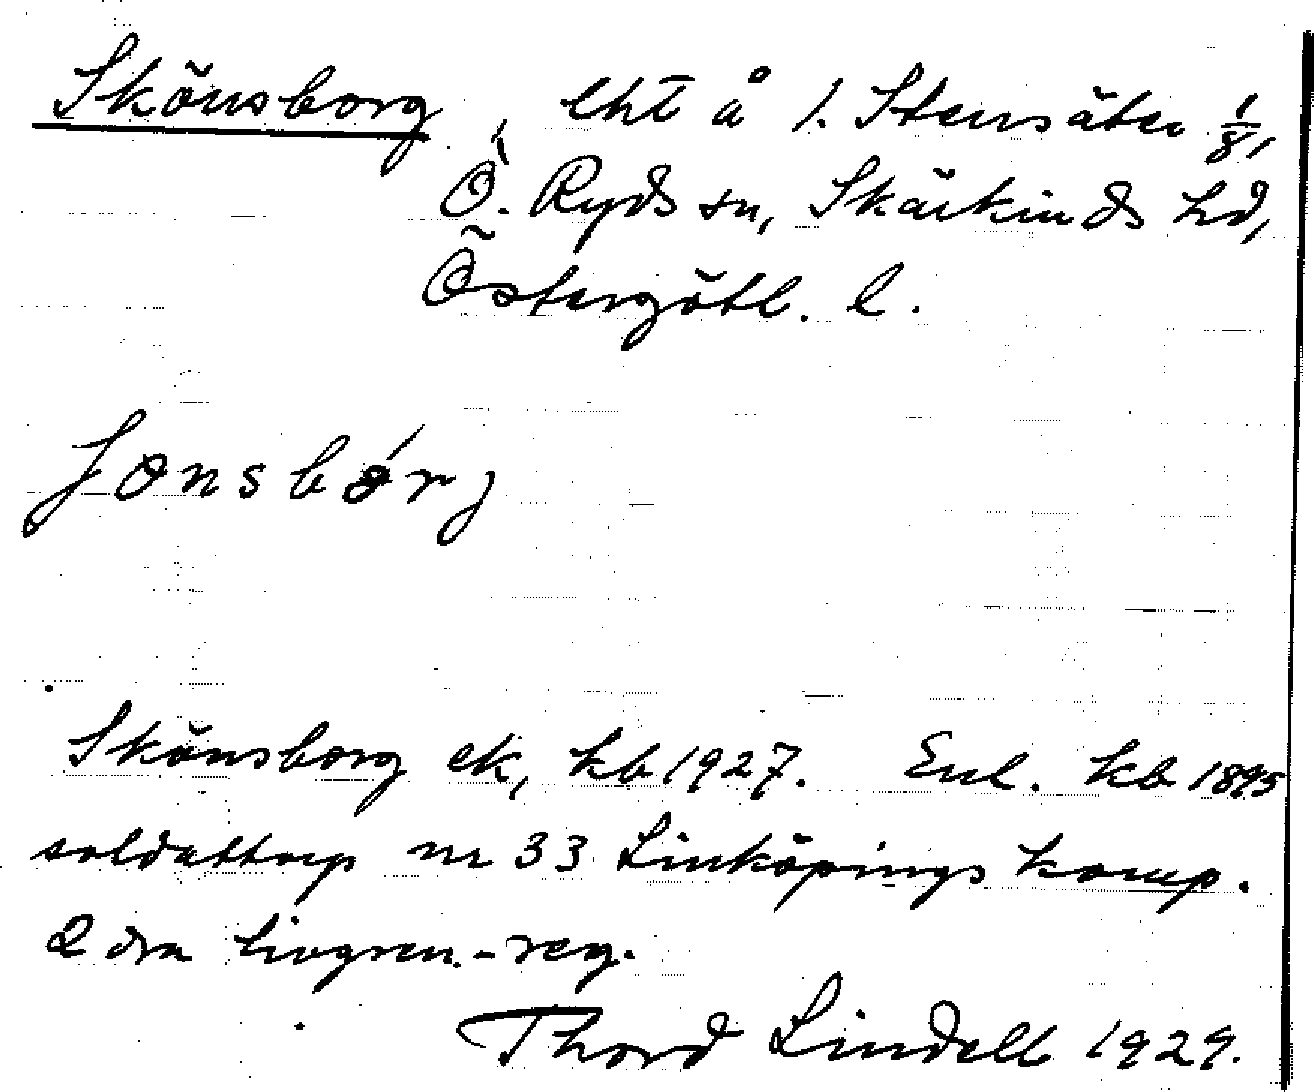 Skönsborg, lht å 1. Stensäter 1/8,
Ö. Ryds sn, Skärkinds hd,
Östergötl. l.
Jonsbórj
Skönsborg ek, kb 1927. Enl. kb 1895
soldattorp nr 33 Linköpings komp.
2 dra livgren.-reg.
Thord Lindell 1929.